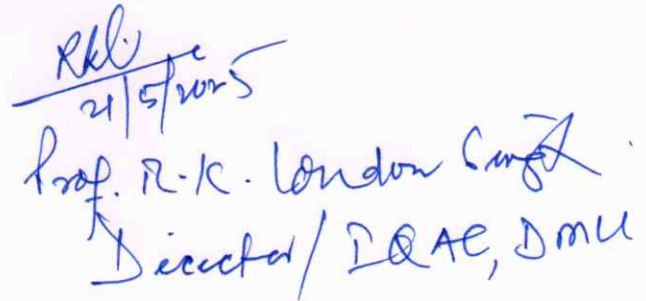 Rkl
21/5/2025
Prof. R.K. London Singh.
Director/IQAC, DMU